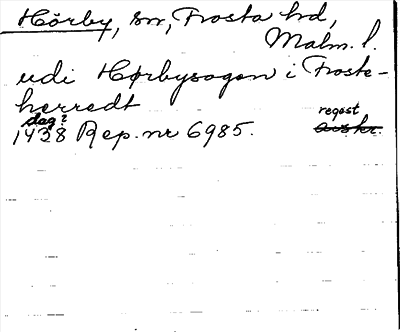 Hörby, sn, Frosta hd,
Malm. l.
udi Hørbysogen i Froste-
herredt
dag? regest
1438 Rep. nr 6985. avskr.